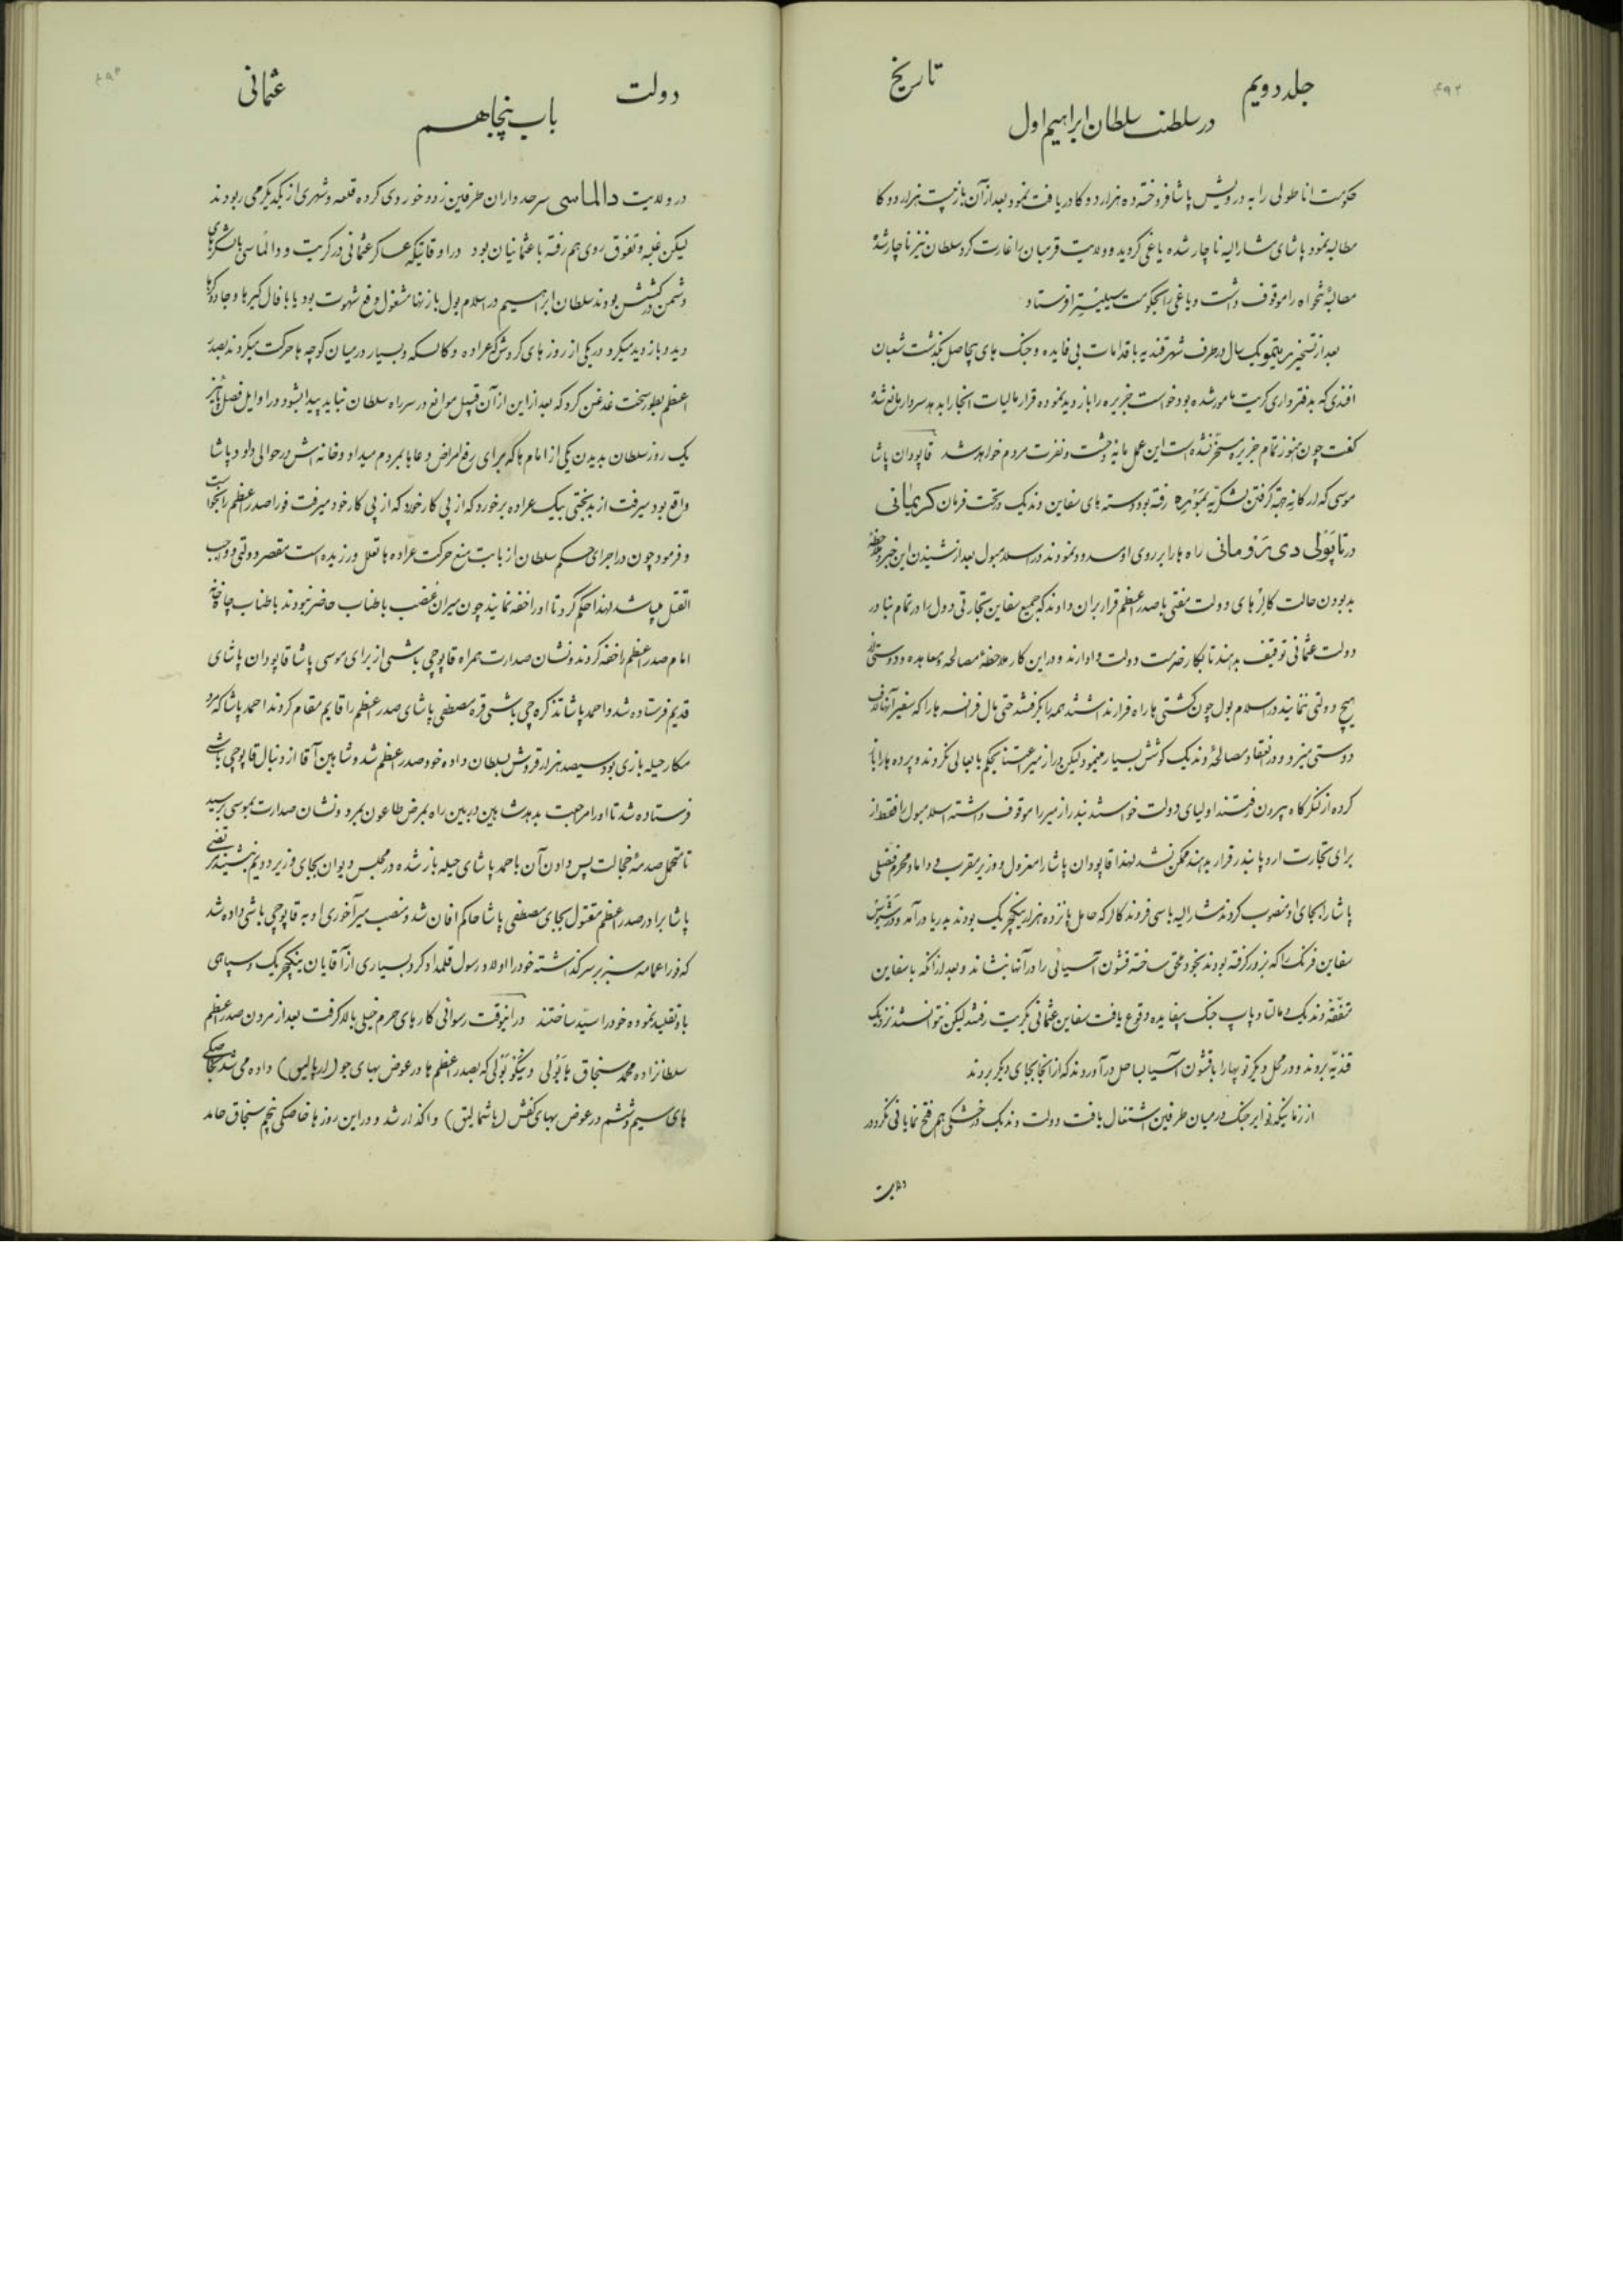 ۴۹۲
جلد دویم
تاریخ
در سلطنت سلطان ابراهیم اول
حکومت اناطولی را به درویش پاشا فروخته ده هزار دوکا دریافت نمود بعد از آن باز بیست هزار دوکا
مطالبه نمود پاشای مشارالیه ناچار شده یاغی کردید و ولایت قرمیان را غارت کرد سلطان نیز ناچار شد
مطالبهٔ تنخواه را موقوف داشت و یاغی را بحکومت سیلیستر افرستاد
بعد از تسخیر ریتمو یک سال در طرف شهر قندیه باقدامات بی فایده و جنک های بیحاصل بگذشت شعبان
افندی که بدفترداری کریت مامور شده بود خواست جزیره را بازدید نموده قرار مالیات انجا را بدهد سردار مانع شد
گفت چون هنوز تمام جزیره مسخر نشده است این عمل مایه وحشت و نفرت مردم خواهد شد قاپودان پاشا
موسی که در کانه جهة گرفتن لشکر به رفته بود دسته های سفاین وندیک در تحت فرمان کریمانی
در ناپولی دی راه ها را بر روی او مسدود نمودند در اسلامبول بعد از شنیدن این خبر و ملاحظه
بد بودن حالت کالرهای دولت مفتی با صدر اعظم قرار بران دادند که جمیع سفاین تجارتی دول را در تمام بنادر
دولت عثمانی توقیف بدهند تا بکار خدمت دولت وادارند و در این کار ملاحظهٔ مصالحه و معاهده و دوستی
هیچ دولتی ننمایند در اسلامبول چون کشتی ها راه فرار نداشتند همه را بگرفتند حتی مال فرانسه ها را که سفیر آنها لاف
دوستی میزد و در انعقاد مصالحهٔ وندیک کوشش بسیار مینمود لیکن در ازمیر اعتنا بحکم بابعالی نکردند و پرده ها را باز
کرده از لنگرگاه بیرون رفتند اولیای دولت خواستند بندر ازمیر را موقوف داشته اسلامبول را فقط از
برای تجارت اروپا بندر قرار بدهند ممکن نشد لهذا قاپودان پاشا را معزول و وزیر مقرب و داماد محرم فضلی
پاشا را بجای او منصوب کردند مشارالیه با سی فروند کالر که حامل پانزده هزار ینکچریک بودند بدریا در آمد و در
سفاین فرنک را که بزور گرفته بودند بخود ملحق ساخته قشون آسیائی را در آنها بنشاند و بعد از آنکه با سفاین
متفقه وندیک و مالتا و پاپ جنک بیفایده وقوع یافت سفاین عثمانی بکریت رفتند لیکن نتوانستند نزدیک
قندیه بروند و در محل دیگر توپها را با قشون آسیا بساحل درآوردند که از انجا بجای دیگر بروند
از زمانیکه نوایر جنک در میان طرفین اشتعال یافت دولت وندیک در خشکی هم فتح نمایانی نکرد در
ولایت
۴۹۳
دولت
عثمانی
باب پنجاهم
در ولایت دالماسی سرحد داران طرفین زد و خوردی کرده قلعه و شهری از یکدیگر می ربودند
لیکن غلبه و تفوق روی هم رفته با عثمانیان بود در اوقاتیکه عساکر عثمانی در کریت و دالماسی با لشکرهای
دشمن در کشش بودند سلطان ابراهیم در اسلامبول با زنها مشغول دفع شهوت بود یا با فال گیرها و جادوگرها
دید و بازدید میکرد در یکی از روزهای گردش که عراده و کالسکه بسیار در میان کوچه ها حرکت میکردند بصدر
اعظم بطور سخت غدغن کرد که بعد از این از آن قبیل موانع در سر راه سلطان نباید پیدا بشود در اوایل فصل پائیز
یک روز سلطان بدیدن یکی از امام ها که برای رفع امراض دعا بمردم میداد و خانه اش در حوالی داود پاشا
واقع بود میرفت از بدبختی بیک عراده برخورد که از پی کار خود که از پی کار خود میرفت فورا صدر اعظم را بخواست
و فرمود چون در اجرای حکم سلطان از بابت منع حرکت عراده ها تعلل ورزیده است مقصر دولتی و واجب
القتل میباشد لهذا حکم کرد تا او را خفه نمایند چون میران غضب با طناب حاضر نبودند با طناب چاه خانه
امام صدر اعظم را خفه کردند و نشان صدارت همراه قاپوچی باشی از برای موسی پاشا قاپودان پاشای
قدیم فرستاده شد و احمد پاشا تذکره چی باشی قره مصطفی پاشای صدر اعظم را قایم مقام کردند احمد پاشا که مرد
مکار حیله بازی بود سیصد هزار قروش بسلطان داده خود صدر اعظم شد و شاهین آقا از دنبال قاپوچی باشی
فرستاده شد تا او را مراجعت بدهد شاهین در بین راه بمرض طاعون بمرد و نشان صدارت بموسی رسید
تا متحمل صدمهٔ خجالت پس دادن آن باحمد پاشای حیله باز شده در مجلس دیوان بجای وزیر دویم بنشیند
پاشا برادر صدر اعظم مقتول بجای مصطفی پاشا حاکم افان شد و منصب میرآخوری او به قاپوچی باشی داده شد
که فورا عمامه سبز بر سر گذاشته خود را اولاد رسول قلمداد کرد بسیاری از آقایان ینکچریک و سپاهی
باو تقلید نموده خود را سید ساختند در اینوقت رسوائی کارهای حرم خیلی بالا گرفت بعد از مردن صدر اعظم
سلطانزاده محمد سنجاق و نیکوپولی که بصدر اعظم ها در عوض بهای جو (ارپالیق) داده می شد بخاصکی
های سیم و ششم در عوض بهای کفش (پاشمالیق) واگذار شد و در این روزها خاصکی پنجم سنجاق حامد